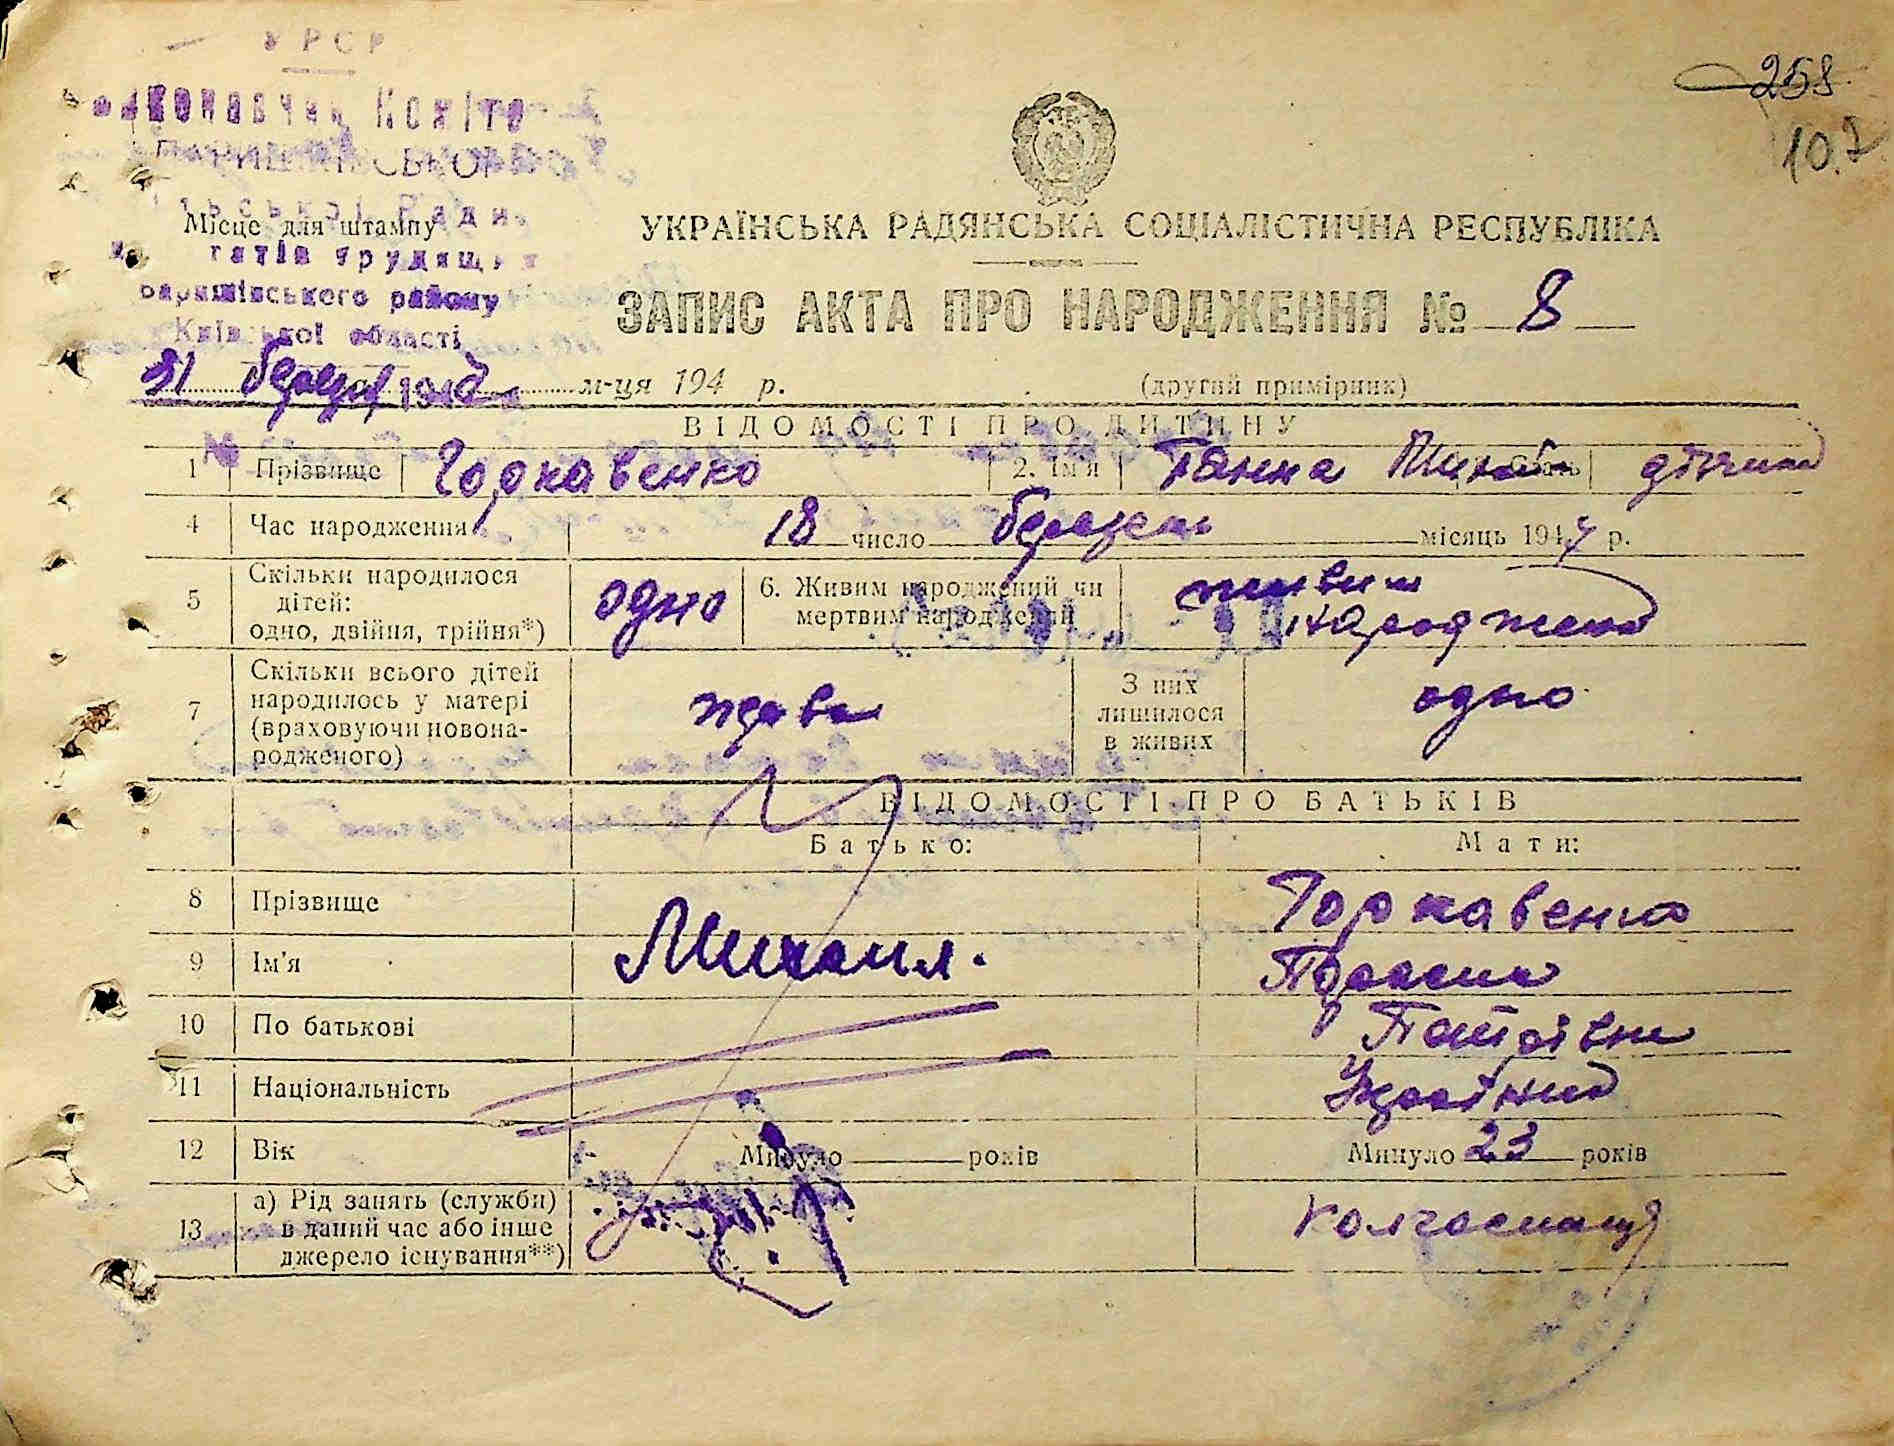 УРСР
258
107
Місце для штампу
Баришівського району
Київської області
УКРАЇНСЬКА РАДЯНСЬКА СОЦІАЛІСТИЧНА РЕСПУБЛІКА
ЗАПИС АКТА ПРО НАРОДЖЕННЯ № 8
31 березня м-ця 194 р. (другий примірник)
ВІДОМОСТІ ПРО ДИТИНУ
1 Прізвище Горкавенко 2. Ім'я Ганна дівчина
4 Час народження 18 число березень місяць 1947 р.
5 Скільки народилося дітей: одно, двійня, трійня*) одно 6. Живим народжений чи мертвим народжений живим народжена
7 Скільки всього дітей народилось у матері (враховуючи новонародженого) З них лишилося в живих одно
ВІДОМОСТІ ПРО БАТЬКІВ
Батько: Мати:
8 Прізвище Горкавенко
9 Ім'я Михаил.
10 По батькові Петрівна
11 Національність
12 Вік Минуло років Минуло 23 років
13 а) Рід занять (служби) в даний час або інше джерело існування**) Колгоспниця